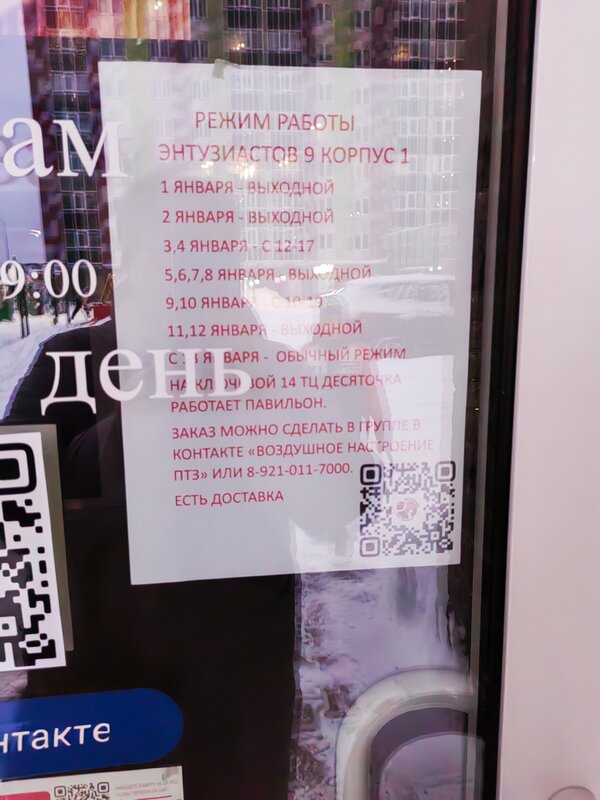 ам
9:00
день
РЕЖИМ РАБОТЫ
ЭНТУЗИАСТОВ 9 КОРПУС 1
1 ЯНВАРЯ - ВЫХОДНОЙ
2 ЯНВАРЯ - ВЫХОДНОЙ
3,4 ЯНВАРЯ - С 12-17
5,6,7,8 ЯНВАРЯ - ВЫХОДНОЙ
9,10 ЯНВАРЯ - С 10-19
11,12 ЯНВАРЯ - ВЫХОДНОЙ
С 13 ЯНВАРЯ - ОБЫЧНЫЙ РЕЖИМ
НА КЛЮЧЕВОЙ 14 ТЦ ДЕСЯТОЧКА
РАБОТАЕТ ПАВИЛЬОН.
ЗАКАЗ МОЖНО СДЕЛАТЬ В ГРУППЕ В
КОНТАКТЕ «ВОЗДУШНОЕ НАСТРОЕНИЕ
ПТЗ» ИЛИ 8-921-011-7000.
ЕСТЬ ДОСТАВКА
нтакте